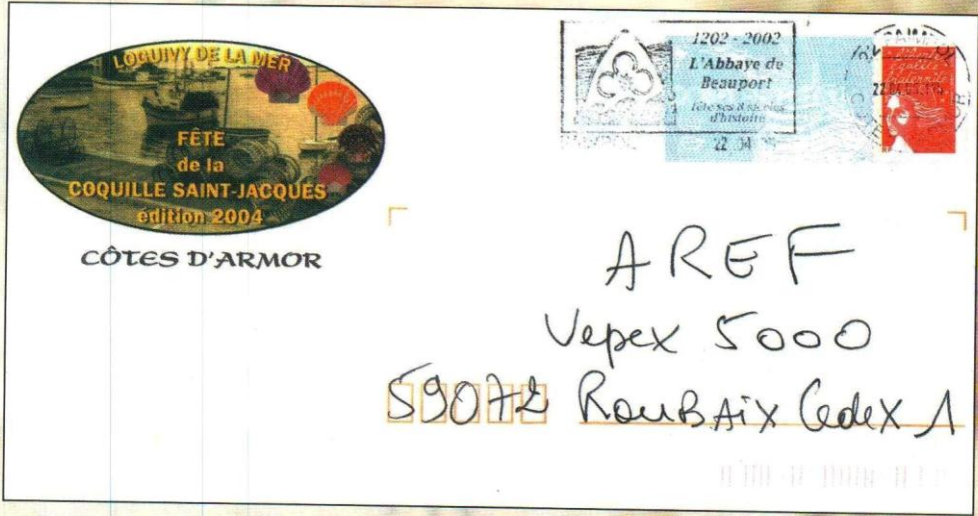 LOGUIVY DE LA MER
FÊTE
de la
COQUILLE SAINT-JACQUES
édition 2004
CÔTES D'ARMOR
1202 - 2002
L'Abbaye de
Beauport
fête ses 8 siècles
d'histoire
liberté
égalité
fraternité
AREF
Vepex 5000
59072 RouBAiX Cedex 1